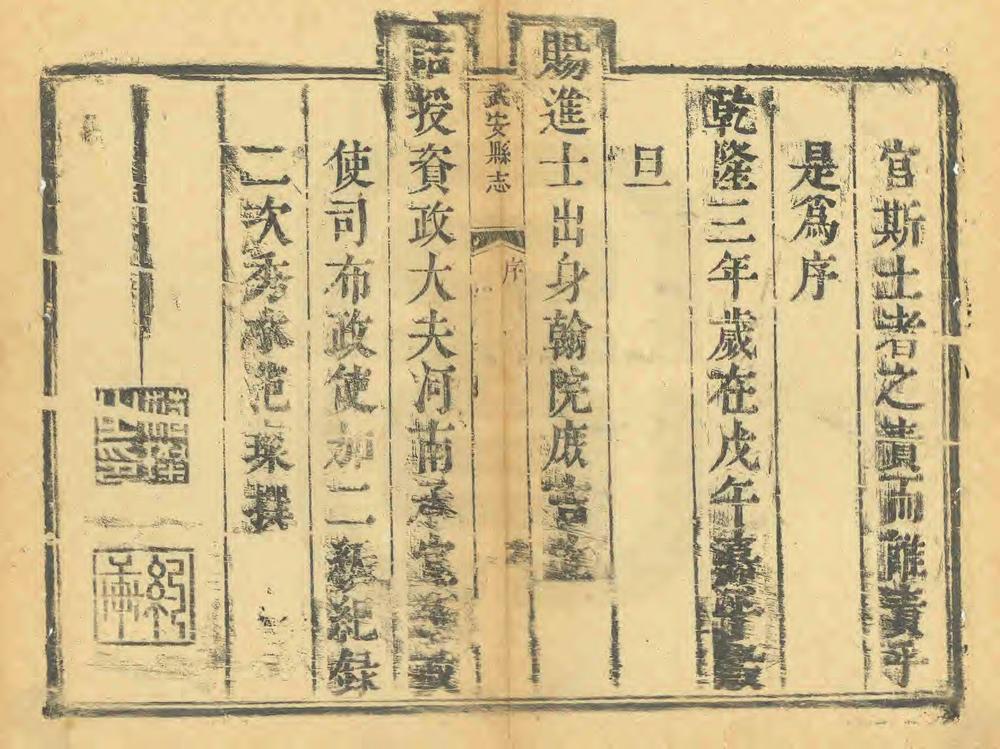 官斯土者之責而誰責乎
是爲序
乾隆三年歲在戊午嘉平
旦
賜進士出身翰院庶吉士
武安縣志
序
誥授資政大夫河南承宣
使司布政使加二級紀錄
二次秀水范璨撰